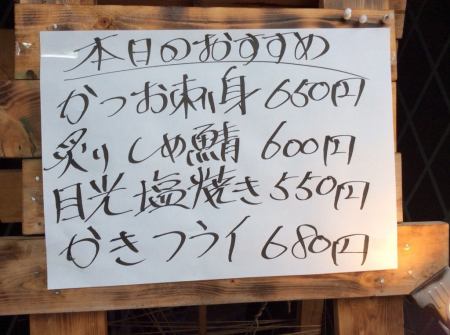 本日のおすすめ
かつお刺身 650円
炙りしめ鯖 600円
目光塩焼き 550円
かきフライ 680円